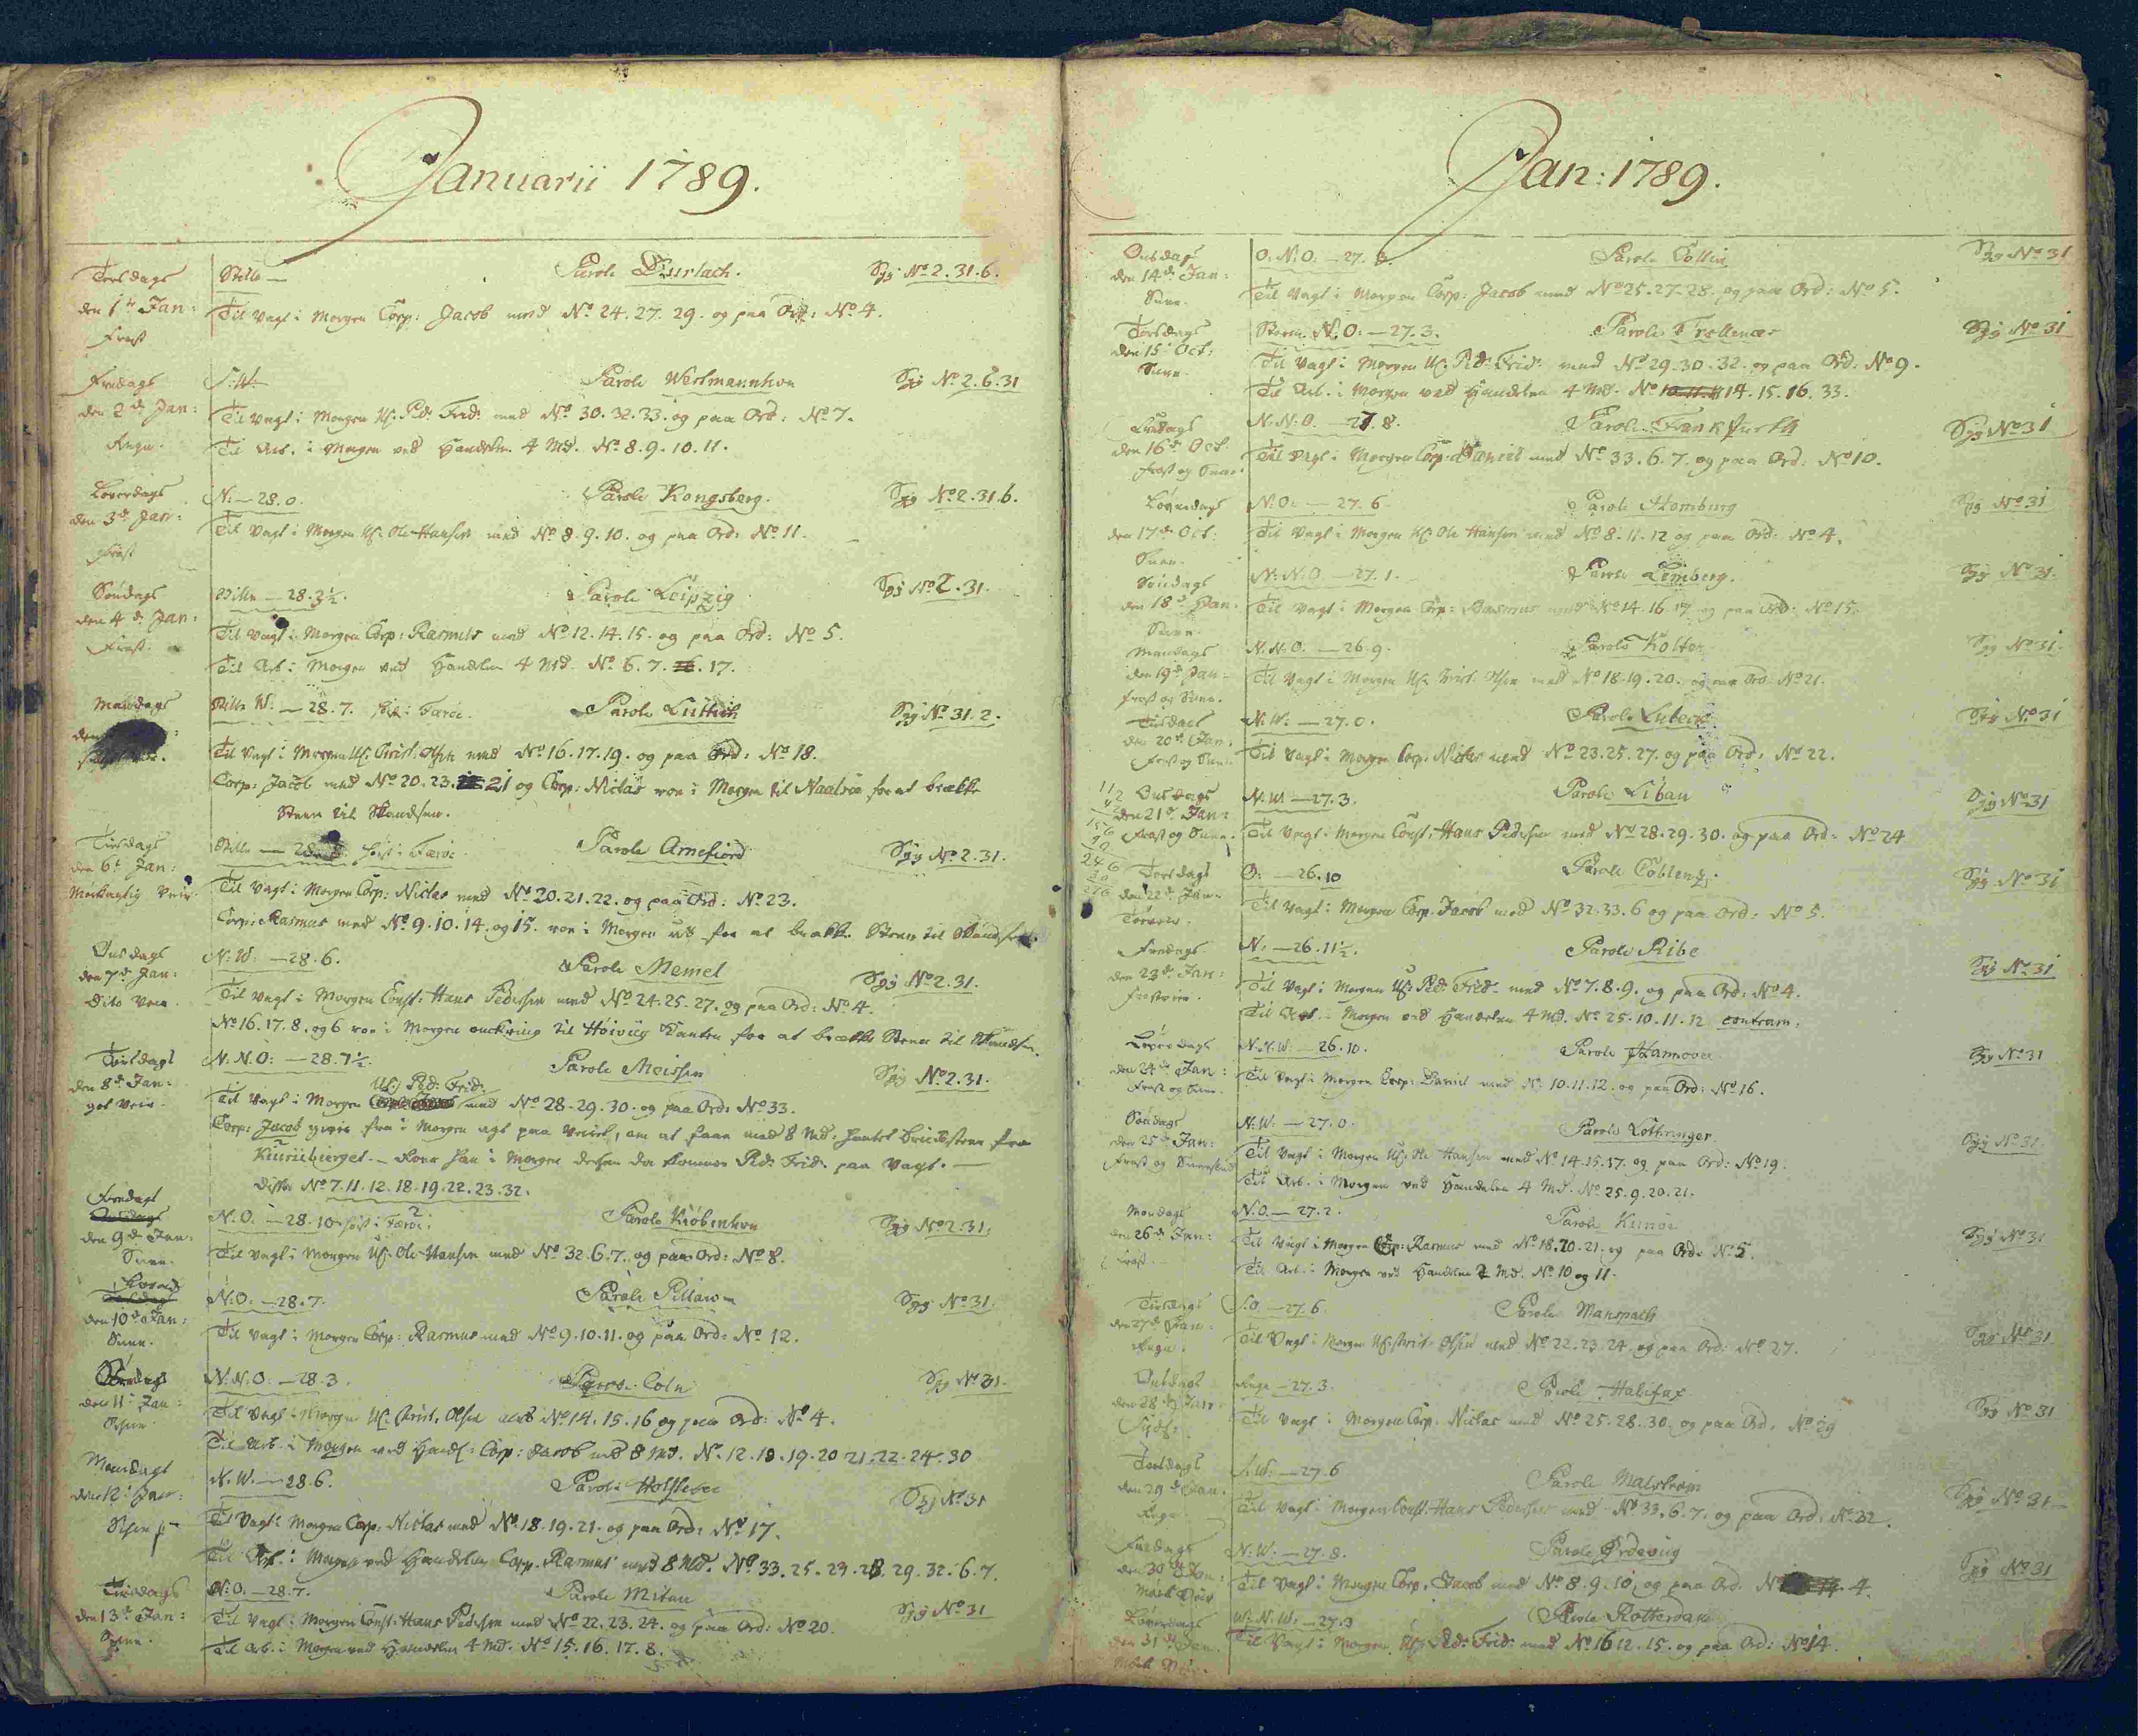 Januarii 1789.
Torsdags
den 1te Jan:
Frost
Stille —
Parole Durlach.
Syg No 2.31.6.
Til Vagt i Morgen Corp: Jacob med No 24.27.29. og paa Ord: No 4.
Fredags
den 2de Jan:
Regn.
S:W:
Parole Westmannhon
Syg No 2.6.31
Til Vagt i Morgen Us: Ped: Frid: med No 30.32.33. og paa Ord: No 7.
Til Arb. i Morgen ved Handelen 4 Md. No 8.9.10.11.
Løverdags
den 3de Jan:
Frost
N: — 28.0.
Parole Kongsberg.
Syg No 2.31.6.
Til Vagt i Morgen Us: Ole Hansen med No 8.9.10. og paa Ord: No 11.
Søndags
den 4de Jan:
Frost.
Stille — 28.3½.
Parole Leipzig
Syg No 2.31.
Til Vagt i Morgen Corp: Rasmus med No 12.14.15. og paa Ord: No 5.
Til Arb: i Morgen ved Handelen 4 Md. No 6.7. 16. 17.
Mandags
den
Stille W: — 28.7.
Parole Luttich
Syg No 31.2.
Til Vagt i Morgen Us: Christ: Olsen med No 16.17.19. og paa Ord: No 18.
Corp: Jacob med No 20.23. 21 og Corp: Niclas roe i Morgen til Naalsøe for at brække
Steen til Skandsen.
Tiisdags
den 6te Jan:
Stille — 28
Parole Arnefiord
Syg No 2.31.
Til Vagt i Morgen Corp: Niclas med No 20.21.22. og paa Ord: No 23.
Corp: Rasmus med No 9.10.14. og 15. roe i Morgen ud for at brække Steen til Skandsen.
Onsdags
den 7de Jan:
Dito Veir
N:W: — 28.6.
Parole Memel
Syg No 2.31.
Til Vagt i Morgen Const: Hans Pedersen med No 24.25.27. og paa Ord: No 4.
No 16.17.8. og 6 roe i Morgen omkring til Høivüg Tanken for at brække Steen til Skandsen.
Torsdags
den 8de Jan:
got Veir
N.N.O: — 28.7½.
Parole Meissen
Syg No 2.31.
Us: Ped: Frid:
Til Vagt i Morgen med No 28.29.30. og paa Ord: No 33.
Corp: Jacob giver for i Morgen agt paa Veiret, om at faae med 8 Md:
Ped: Frid: paa Vagt. —
Disse No 7.11.12.18.19.22.23.32.
Fredags
Onsdags
den 9de Jan:
Snee.
N.O: — 28.10
Parole Kiøbenhavn
Syg No 2.31.
Til Vagt i Morgen Us: Ole Hansen med No 32.6.7. og paa Ord: No 8.
Løverd
den 10de Jan:
Snee.
N:O: — 28.7.
Parole Pillaw
Syg No 31.
Til Vagt i Morgen Corp: Rasmus med No 9.10.11. og paa Ord: No 12.
Søndags
den 11te Jan:
N:N.O: — 28.3.
Parole Coln
Syg No 31.
Til Vagt i Morgen Us: Christ: Olsen med No 14.15.16 og paa Ord: No 4.
Til Arb. i Morgen ved Handl: Corp: Jacob med 8 Md. No 12.18.19.20.21.22.24.30
Mandags
den 12te Jan:
N.W. — 28.6.
Parole
Syg No 31
Til Vagt i Morgen Corp: Niclas med No 18.19.21. og paa Ord: No 17.
Til Arb: i Morgen ved Handelen Corp: Rasmus med 8 Md. No 33.25.23.28.29.32.6.7.
Tiisdags
den 13de Jan:
Snee.
N:O. — 28.7.
Parole Mitau
Syg No 31
Til Vagt i Morgen Const: Hans Pedersen med No 22.23.24. og paa Ord: No 20.
Til Arb: i Morgen ved Handelen 4 Md. No 15.16.17.8.
Jan: 1789.
Onsdags
den 14de Jan:
Snee.
O.N.O: — 27.
Parole Collin
Syg No 31
Til Vagt i Morgen Corp: Jacob med No 25.27.28. og paa Ord: No 5.
Torsdags
den 15de Oct:
Snee.
Storm N.O: — 27.3.
Parole
Syg No 31
Til Vagt i Morgen Us: Ped: Frid: med No 29.30.32. og paa Ord: No 9.
Til Arb. i Morgen ved Handelen 4 Md. No 14.15.16.33.
Fredags
den 16de Oct.
Frost og Snee.
N.N:O. — 27.8.
Parole Frankfurth
Syg No 31
Til Vagt i Morgen Corp: Daniel med No 33.6.7. og paa Ord: No 10.
Løverdags
den 17de Oct:
Snee.
N.O: — 27.6
Parole Homburg
Syg No 31
Til Vagt i Morgen Us: Ole Hansen med No 8.11.12 og paa Ord: No 4.
Søndags
den 18de Jan:
Snee.
N:N:O. — 27.1.
Parole Lemberg.
Syg No 31.
Til Vagt i Morgen Corp: Rasmus med No 14.16.17. og paa Ord: No 15.
Mandags
den 19de Jan:
Frost og Snee.
N:N:O: — 26.9.
Parole Kolter
Syg No 31.
Til Vagt i Morgen Us: Christ: Olsen med No 18.19.20. og paa Ord: No 21.
Tiisdags
den 20de Jan:
Frost og Snee.
N.W: — 27.0.
Parole Lubeck
Syg No 31
Til Vagt i Morgen Corp: Niclas med No 23.25.27. og paa Ord: No 22.
Onsdags
den 21de Jan:
Frost og Snee.
N.W — 27.3.
Parole Liban
Syg No 31
Til Vagt i Morgen Const: Hans Pedersen med No 28.29.30. og paa Ord: No 24
Torsdags
den 22de Jan:
O: — 26.10
Parole Coblentz.
Syg No 31
Til Vagt i Morgen Corp: Jacob med No 32.33.6 og paa Ord: No 5.
Fredags
den 23de Jan:
N: — 26.11½.
Parole Ribe
Syg No 31
Til Vagt i Morgen Us: Ped: Frid: med No 7.8.9. og paa Ord: No 4.
Til Arb. i Morgen ved Handelen 4 Md. No 25.10.11.12
Løverdags
den 24de Jan:
Frost og Snee.
N.N.W. — 26.10.
Parole Hannover
Syg No 31
Til Vagt i Morgen Corp: Daniel med No 10.11.12. og paa Ord: No 16.
Søndags
den 25de Jan:
N:W. — 27.0.
Parole Lothringer.
Syg No 31.
Til Vagt i Morgen Us: Ole Hansen med No 14.15.17. og paa Ord: No 19.
Til Arb. i Morgen ved Handelen 4 Md. No 25.9.20.21.
Mandags
den 26de Jan:
Frost.
N.O. — 27.2.
Parole Kunøe
Syg No 31
Til Vagt i Morgen Corp: Rasmus med No 18.20.21. og paa Ord: No 5.
Til Arb: i Morgen ved Handelen 2 Md. No 10 og 11.
Tiisdags
den 27de Jan:
Regn.
S.O. — 27.6.
Parole Manspach
Syg No 31
Til Vagt i Morgen Us: Christ: Olsen med No 22.23.24. og paa Ord: No 27.
Onsdags
den 28de Jan:
— 27.3.
Parole Halifax
Syg No 31
Til Vagt i Morgen Corp: Niclas med No 25.28.30. og paa Ord: No 29
Torsdags
den 29de Jan:
Regn
S.W: — 27.6
Parole Malstrøm
Syg No 31
Til Vagt i Morgen Const: Hans Pedersen med No 33.6.7. og paa Ord: No 32.
Fredags
den 30te Jan:
N:W: — 27.8.
Parole Ordevug
Syg No 31
Til Vagt i Morgen Corp: Jacob med No 8.9.10. og paa Ord. 4.
Løverdags
den 31te Jan.
W:N.W: — 27.3
Parole Rotterdam
Til Vagt i Morgen Us: Ped: Frid: med No 16.12.15. og paa Ord: No 14.